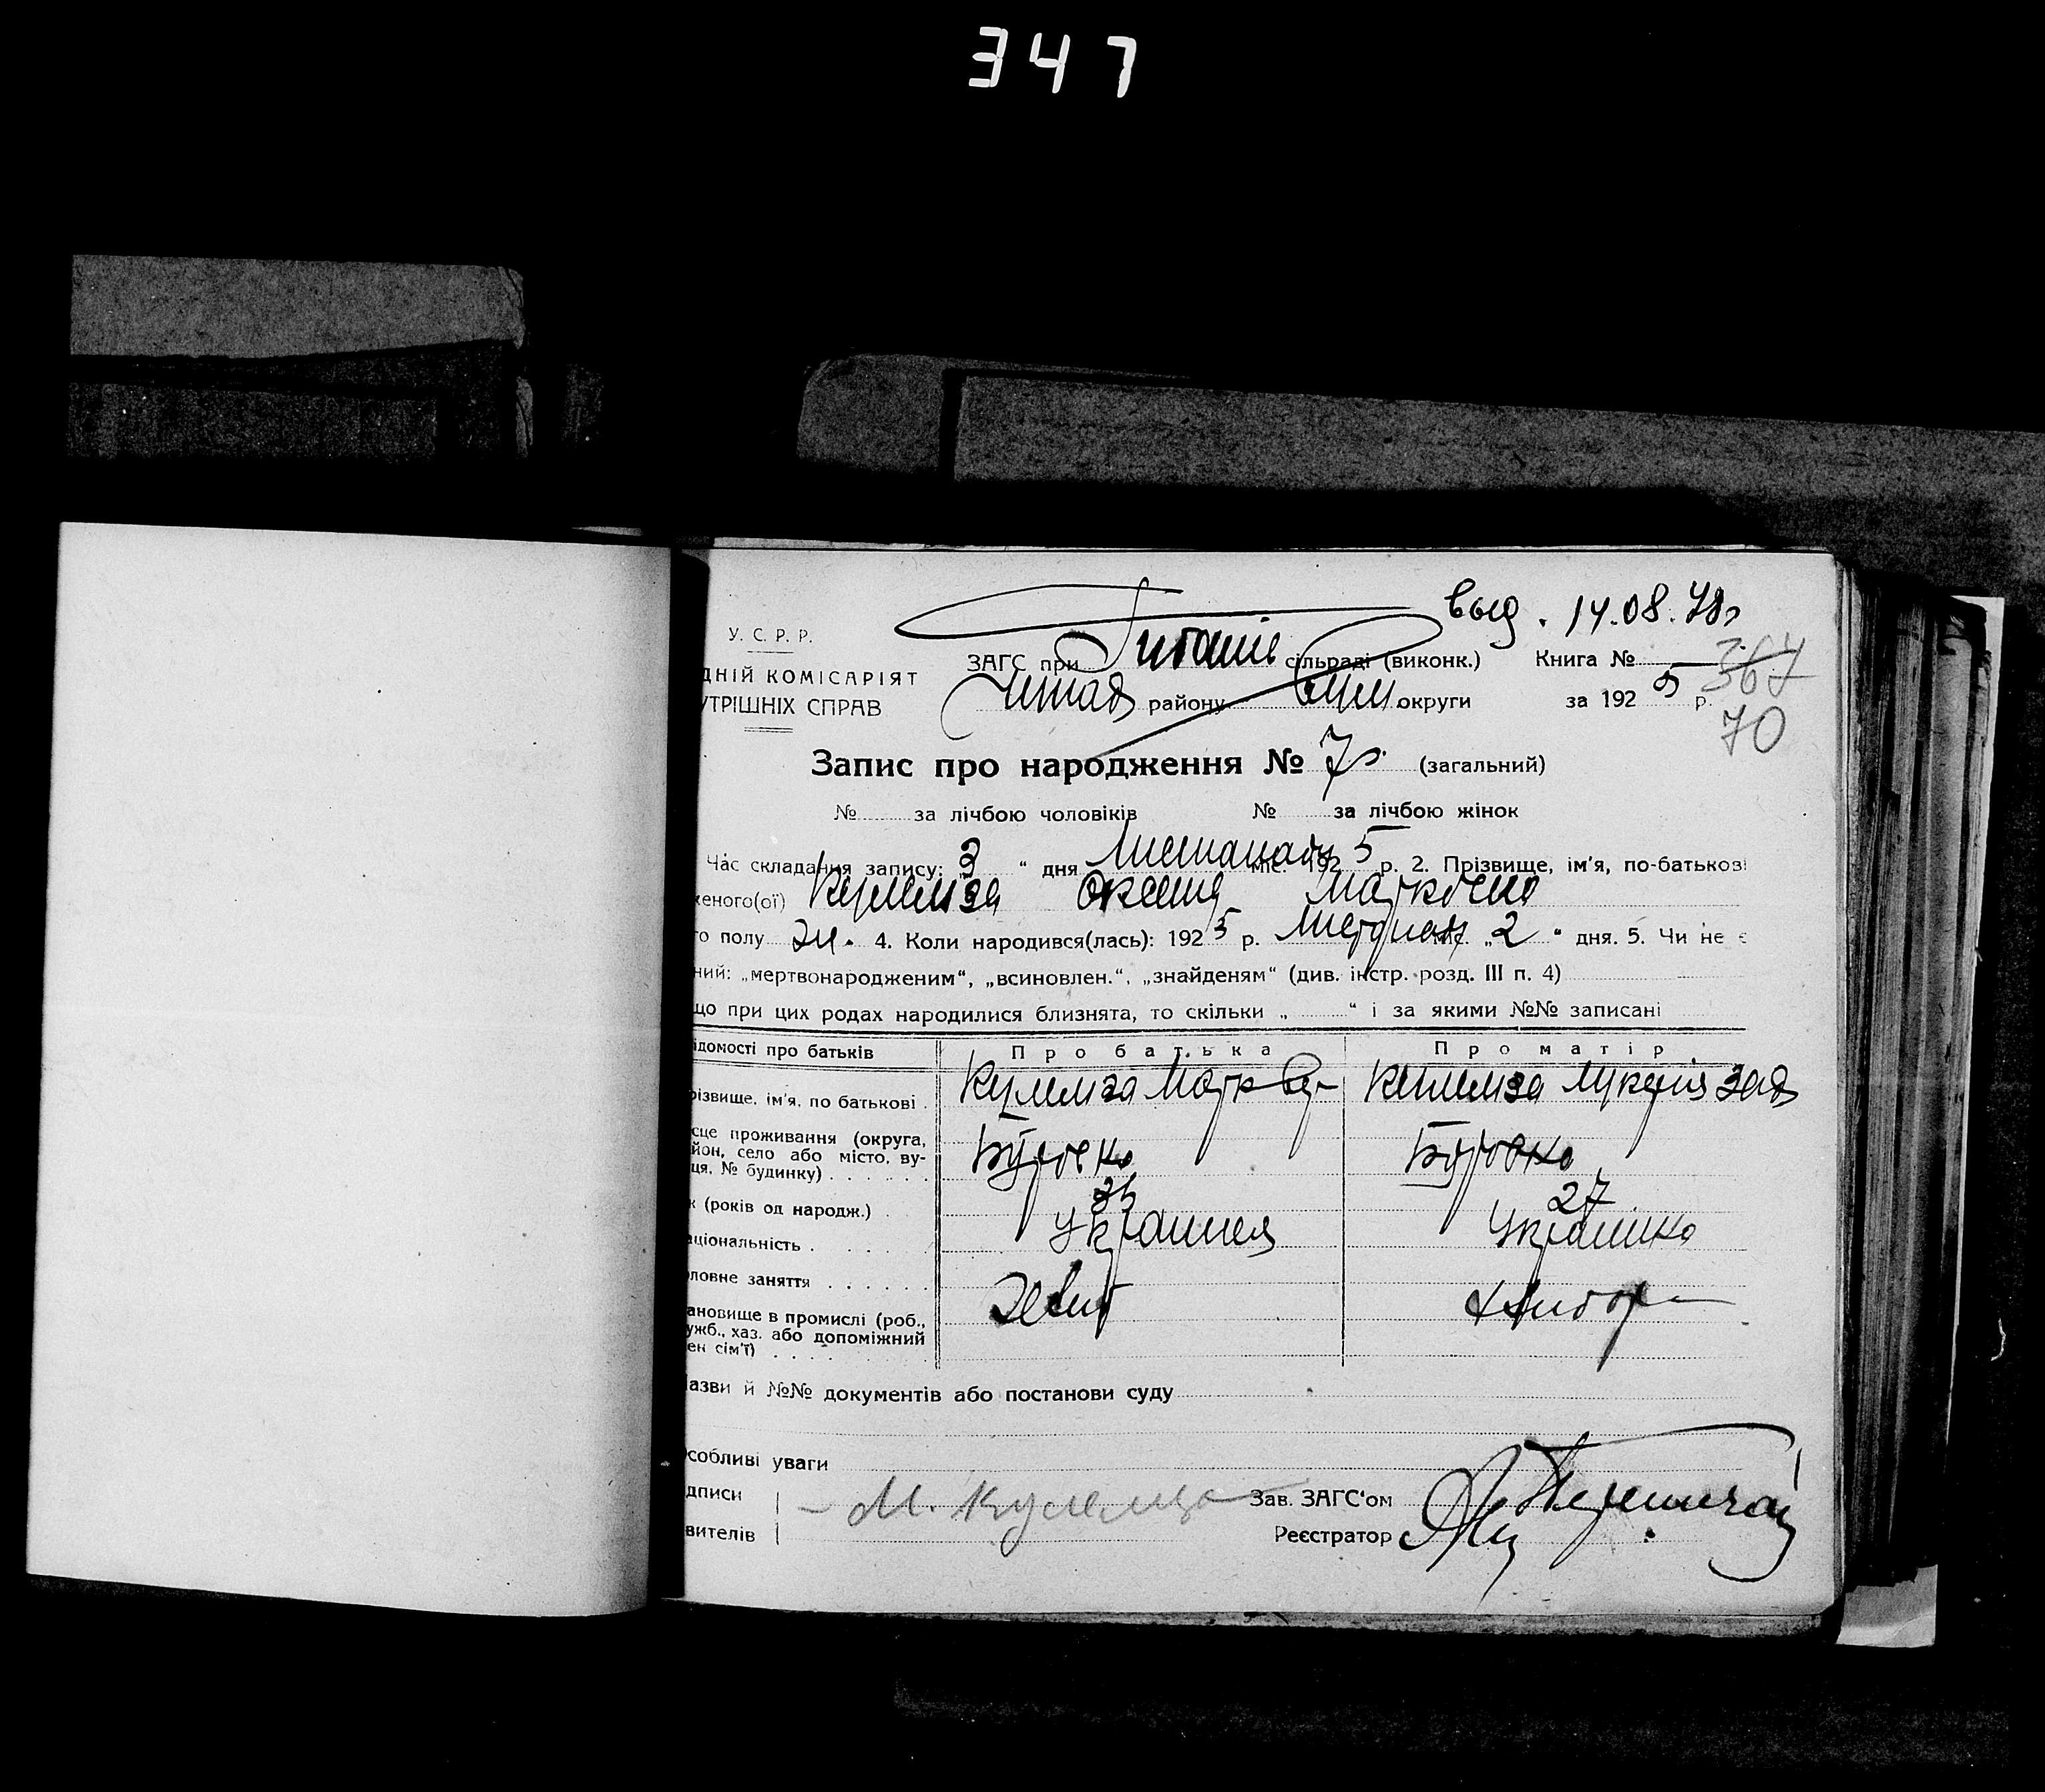 347
выд. 14.08.78г
У. С. Р. Р.
ДНІЙ КОМІСАРІЯТ
УТРІШНІХ СПРАВ
ЗАГС при сільраді (виконк.)
Штаб району Сум округи
Книга № 367
за 1925 р.
70
Запис про народження № 70 (загальний)
№ за лічбою чоловіків № за лічбою жінок
Час складання запису: 3 “ дня Листопаду міс. 1925 р. 2. Прізвище, ім'я, по-батькові
женого(ої) Кулемза Оксена Марковна
го полу Ж. 4. Коли народився(лась): 1925 р. міс. „2“ дня. 5. Чи не є
ний: „мертвонародженим“, „всиновлен.“, „знайденям“ (див. інстр. розд. III п. 4)
що при цих родах народилися близнята, то скільки „ “ і за якими №№ записані
ідомості про батьків Про батька Про матір
різвище, ім'я, по батькові . Кулемза Марк Кулемза Лукерія
сце проживання (округа,
йон, село або місто, ву-
ця, № будинку) . . . . . . Буровка Буровка
к (років од народж.) . 27
аціональність . . . . Украинец Українка
ловне заняття . . . . .
ановище в промислі (роб.,
ужб., хаз. або допоміжний
ен сім'ї) . . . .
азви й №№ документів або постанови суду
собливі уваги
дписи
вителів
М. Кулемза
Зав. ЗАГС'ом
Реєстратор